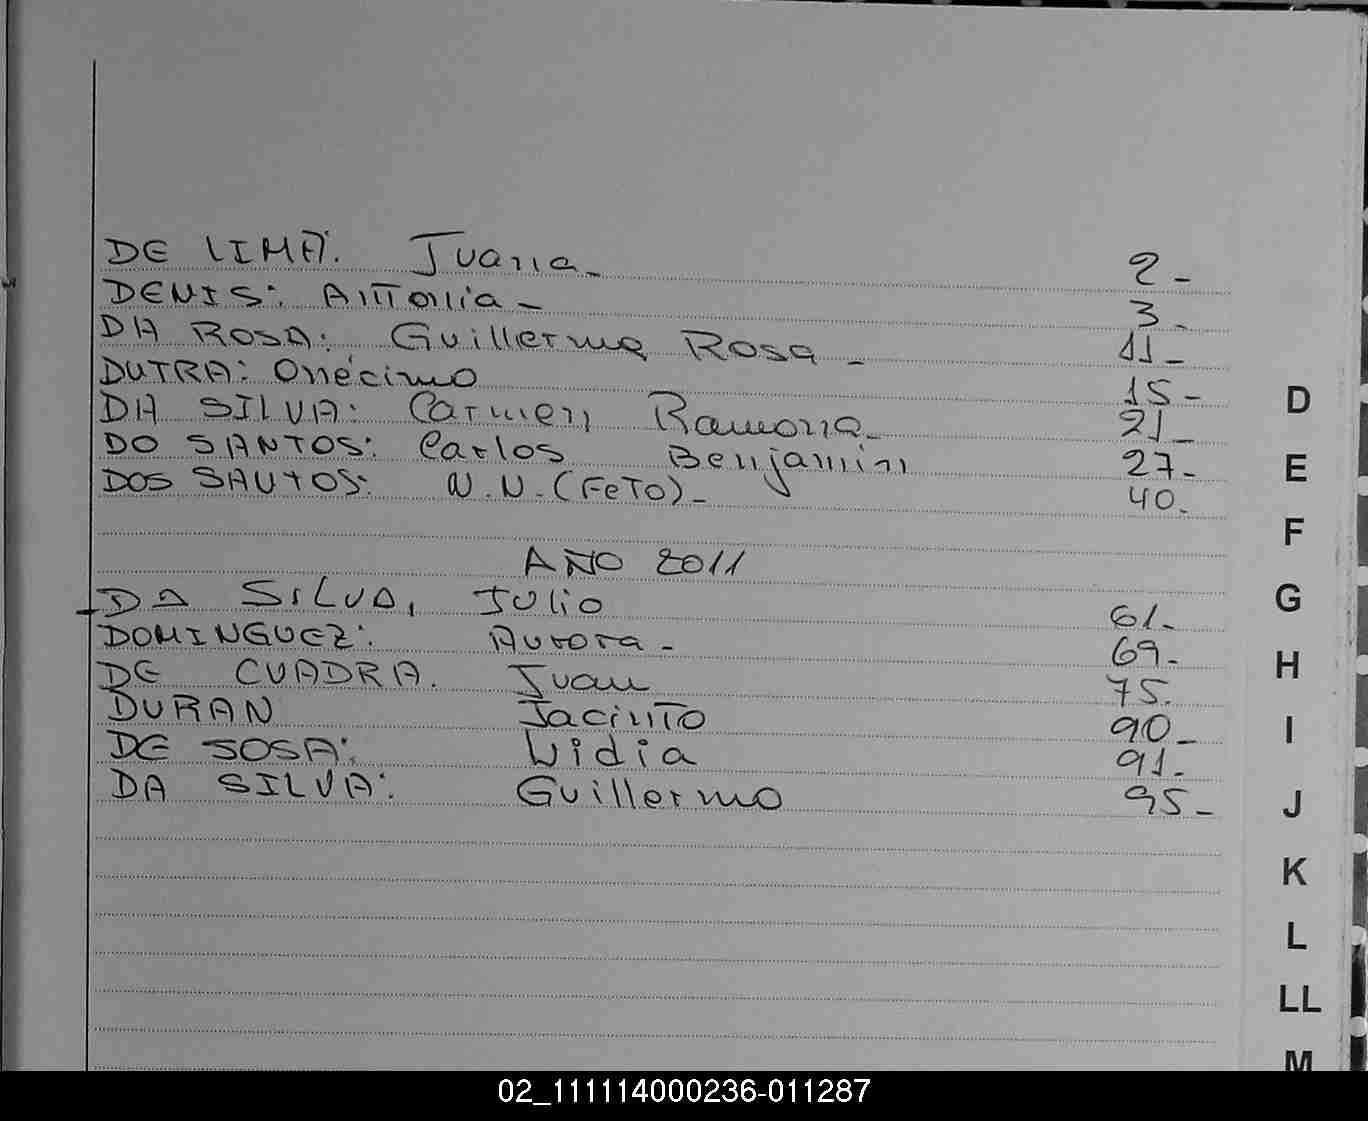 DE LIMA: Juana- 2-
DENIS: Antonia- 3-
DA ROSA: Guillerma Rosa - 11-
DUTRA: Onécimo 15-
DA SILVA: Carmen Ramona- 21-
DO SANTOS: Carlos Benjamin 27-
DOS SANTOS: N.N.(FeTo)- 40-
AÑO 2011
-DA SILVA, JULIO 61-
DOMINGUEZ: Aurora- 69-
DE CUADRA. Juan 75.
DURAN Jacinto 90-
DE SOSA: Lidia 91-
DA SILVA: Guillermo 95-
D
E
F
G
H
I
J
K
L
LL
M
02_111114000236-011287